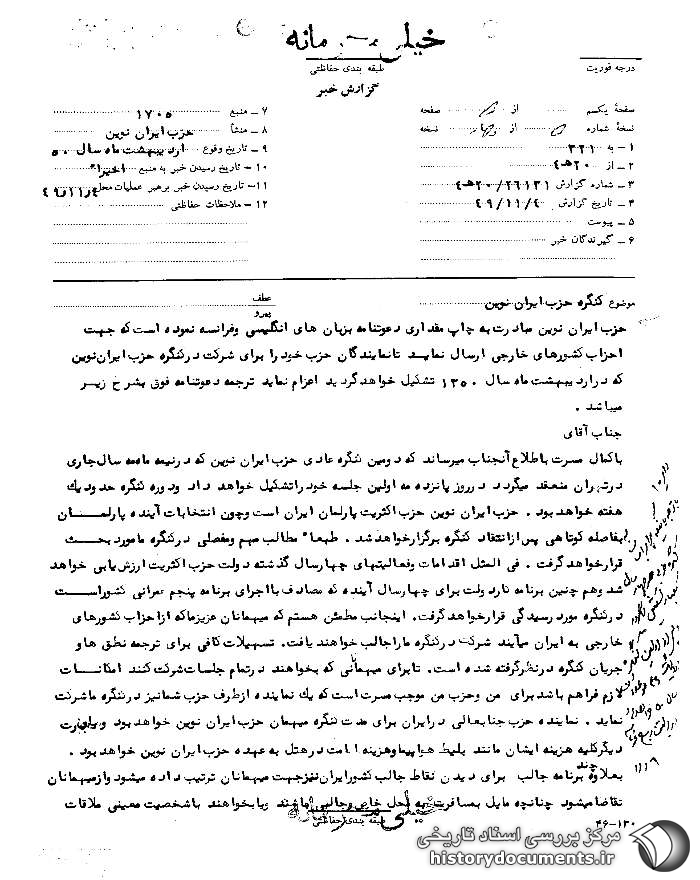 خیلی محرمانه
طبقه بندی حفاظتی
گزارش خبر
درجه فوریت
صفحهٔ یکم از صفحه
نسخهٔ شماره از نسخه
۱ ـ به ۳۲۱
۲ ـ از ۲۰هـ۴
۳ ـ شماره گزارش ۲۶۱۳۱/۲۰هـ۴
۴ ـ تاریخ گزارش ۴۹/۱۱/۴
۵ ـ پیوست
۶ ـ گیرندگان خبر
۷ ـ منبع ۱۷۰۵
۸ ـ منشأ حزب ایران نوین
۹ ـ تاریخ وقوع اردیبهشت ماه سال ۵۰
۱۰ ـ تاریخ رسیدن خبر به منبع اخیراً
۱۱ ـ تاریخ رسیدن خبر برهبر عملیات محل ۴۹/۱۱/۴
۱۲ ـ ملاحظات حفاظتی
موضوع کنگره حزب ایران نوین
عطف
پیرو
حزب ایران نوین مبادرت به چاپ مقداری دعوتنامه بزبان های انگلیسی وفرانسه نموده است که جهت
احزاب کشورهای خارجی ارسال نمایند تا نمایندگان حزب خود را برای شرکت در کنگره حزب ایران نوین
که در اردیبهشت ماه سال ۱۳۵۰ تشکیل خواهد گردید اعزام نماید ترجمه دعوتنامه فوق بشرح زیر
میباشد .
جناب آقای
با کمال مسرت باطلاع آنجناب میرساند که دومین کنگره عادی حزب ایران نوین که در نیمه ماه مه سال جاری
در تهران منعقد میگردد در روز پانزده مه اولین جلسه خود را تشکیل خواهد داد و دوره کنگره حدود یک
هفته خواهد بود . حزب ایران نوین حزب اکثریت پارلمان ایران است وچون انتخابات آینده پارلمان
بفاصله کوتاهی پس از انعقاد کنگره برگزار خواهد شد . طبعاً مطالب مهم ومفصلی در کنگره ما مورد بحث
قرار خواهد گرفت . فی المثل اقدامات وفعالیتهای چهار سال گذشته دولت حزب اکثریت ارزش یابی خواهد
شد وهم چنین برنامه کار دولت برای چهار سال آینده که مصادف با اجرای برنامه پنجم عمرانی کشور است
در کنگره مورد رسیدگی قرار خواهد گرفت. اینجانب مطمئن هستم که میهمانان عزیز ما که از احزاب کشورهای
خارجی به ایران میآیند شرکت در کنگره ما را جالب خواهند یافت. تسهیلات کافی برای ترجمه نطق ها و
جریان کنگره در نظر گرفته شده است. تا برای میهمانی که بخواهند در تمام جلسات شرکت کنند امکانات
لازم فراهم باشد برای من وحزب من موجب مسرت است که یک نماینده از طرف حزب شما نیز در کنگره ما شرکت
نماید . نماینده حزب جنابعالی در ایران برای مدت کنگره میهمان ایران نوین خواهد بود و بعبارت
دیگر کلیه هزینه ایشان مانند بلیط هواپیما وهزینه اقامت در هتل به عهده حزب ایران نوین خواهد بود .
بعلاوه چند برنامه جالب برای دیدن نقاط جالب کشور ایران نیز جهت میهمانان ترتیب داده میشود و از میهمانان
تقاضا میشود چنانچه مایل بمسافرت به محل خاص وجالبی باشند ویا بخواهند با شخصیت معینی ملاقات
خیلی محرمانه
طبقه بندی حفاظتی
۴۶-۱۳۰
مرکز بررسی اسناد تاریخی
historydocuments.ir